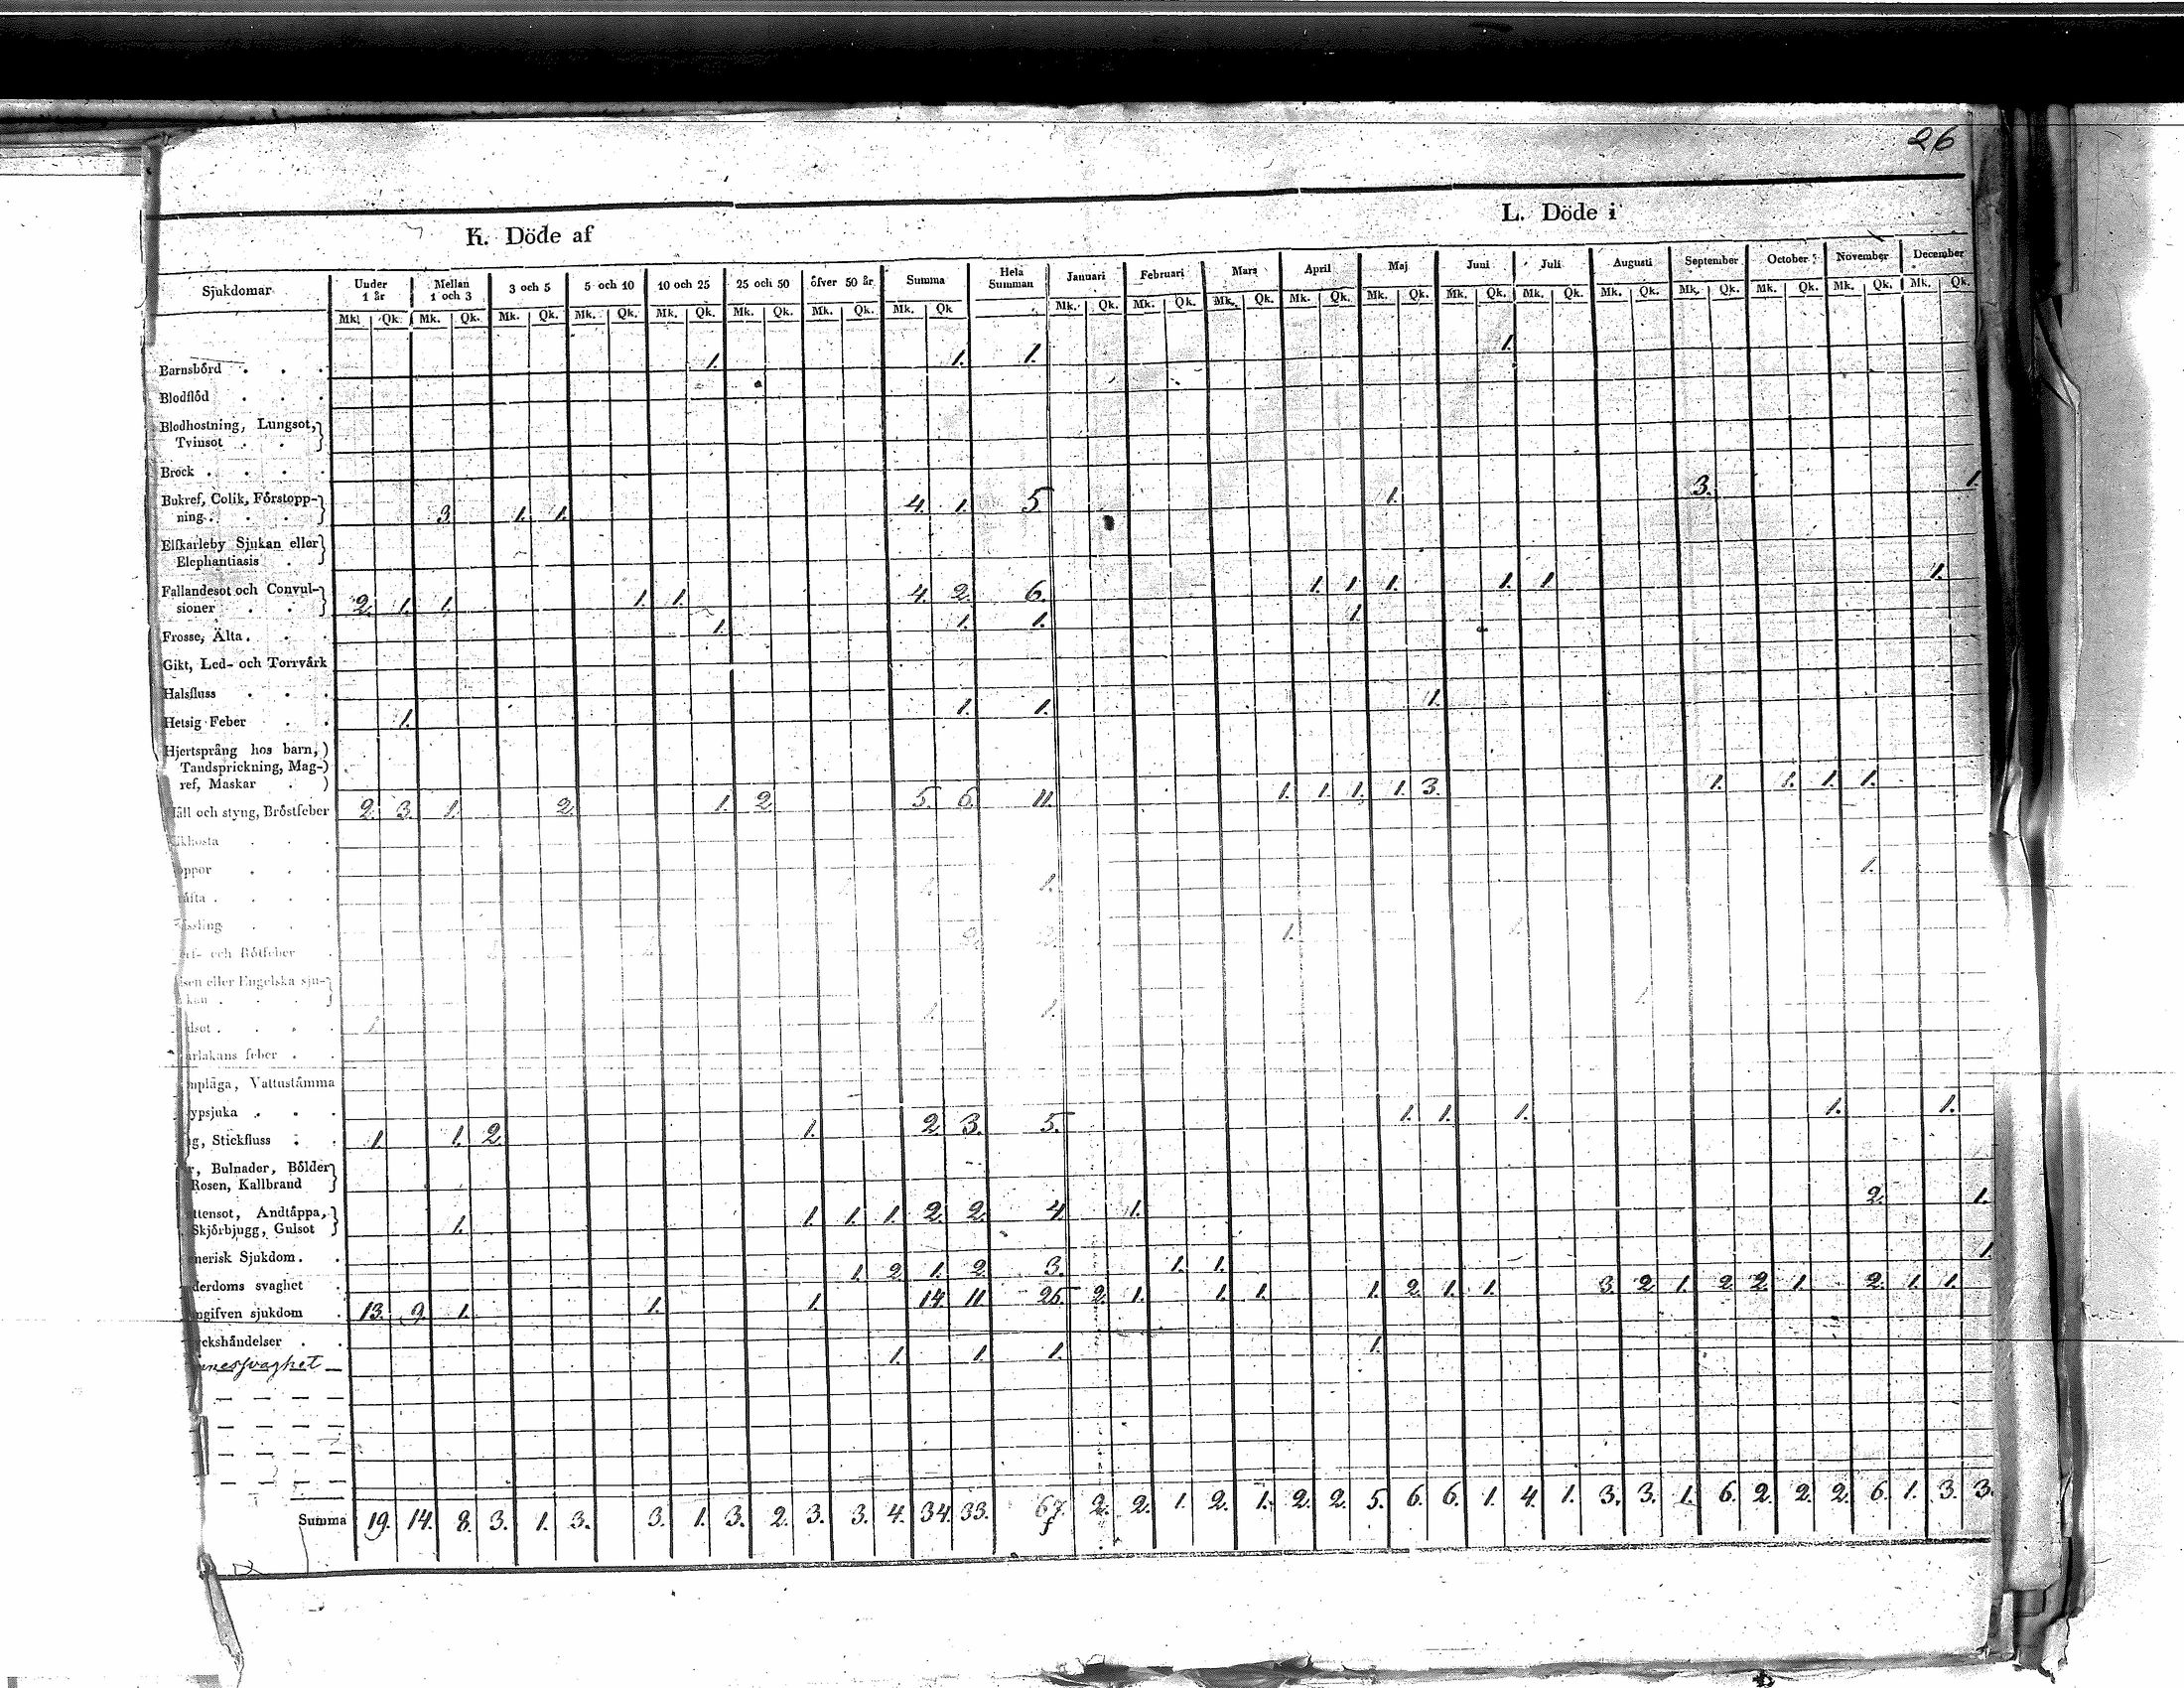 26
K. Döde af L. Döde i
Sjukdomar Under 1 år Mellan 1 och 3 3 och 5 5 och 10 10 och 25 25 och 50 öfver 50 år Summa Hela Summan Januari Februari Mars April Maj Juni Juli Augusti September October November December
Mk. Qk. Mk. Qk. Mk. Qk. Mk. Qk. Mk. Qk. Mk. Qk. Mk. Qk. Mk. Qk. Mk. Qk. Mk. Qk. Mk. Qk. Mk. Qk. Mk. Qk. Mk. Qk. Mk. Qk. Mk. Qk. Mk. Qk. Mk. Qk. Mk. Qk. Mk. Qk.
Barnsbörd . . . 1. 1. 1. 1.
Blodflöd . . .
Blodhostning, Lungsot,
Tvinsot . .
Bråck . . . .
Bukref, Colik, Förstopp-
ning . . . 3. 1. 1. 4. 1. 5 1. 3. 1.
Elfkarleby Sjukan eller
Elephantiasis .
Fallandesot och Convul-
sioner . . 2. 1. 1. 1. 1. 4. 2. 6. 1. 1. 1. 1. 1. 1.
Frosse, Älta . . . 1. 1. 1. 1.
Gikt, Led- och Torrvärk
Halsfluss . . .
Hetsig Feber . . 1. 1. 1. 1.
Hjertsprång hos barn,
Tandsprickning, Mag-
ref, Maskar .
Håll och styng, Bröstfeber 2. 3. 1. 2. 1. 2. 5. 6. 11. 1. 1. 1. 1. 3. 1. 1. 1. 1.
khosta . . .
oppor . . . 1.
åfta . . . . 1. 1. 1.
ssling . . . 1. 1.
och Rötfeber . 2. 2.
sen eller Engelska sju-
kan . . . 1.
dsot . . . . 1. 1. 1.
arlakans feber . .
mpläga, Vattustämma
ypsjuka . . . 1. 1. 1. 1. 1.
g, Stickfluss . . 1. 1. 2. 1. 2. 3. 5.
r, Bulnader, Bölder
Rosen, Kallbrand 2. 1.
ttensot, Andtäppa,
Skjörbjugg, Gulsot 1. 1. 1. 1. 2. 2. 4. 1.
nerisk Sjukdom . . 1.
derdoms svaghet . 1. 2. 1. 2. 3. 1. 1.
ngifven sjukdom . 13. 9. 1. 1. 1. 14. 11 25. 2. 1. 1. 1. 1. 2. 1. 1. 3. 2. 1. 2. 2. 1. 2. 1. 1.
yckshändelser . .
nessvaghet 1. 1. 1. 1.
Summa 19. 14. 8. 3. 1. 3. 3. 1. 3. 2. 3. 3. 4. 34. 33. 67. 2. 2. 1. 2. 1. 2. 2. 5. 6. 6. 1. 4. 1. 3. 3. 1. 6. 2. 2. 2. 6. 1. 3. 3.